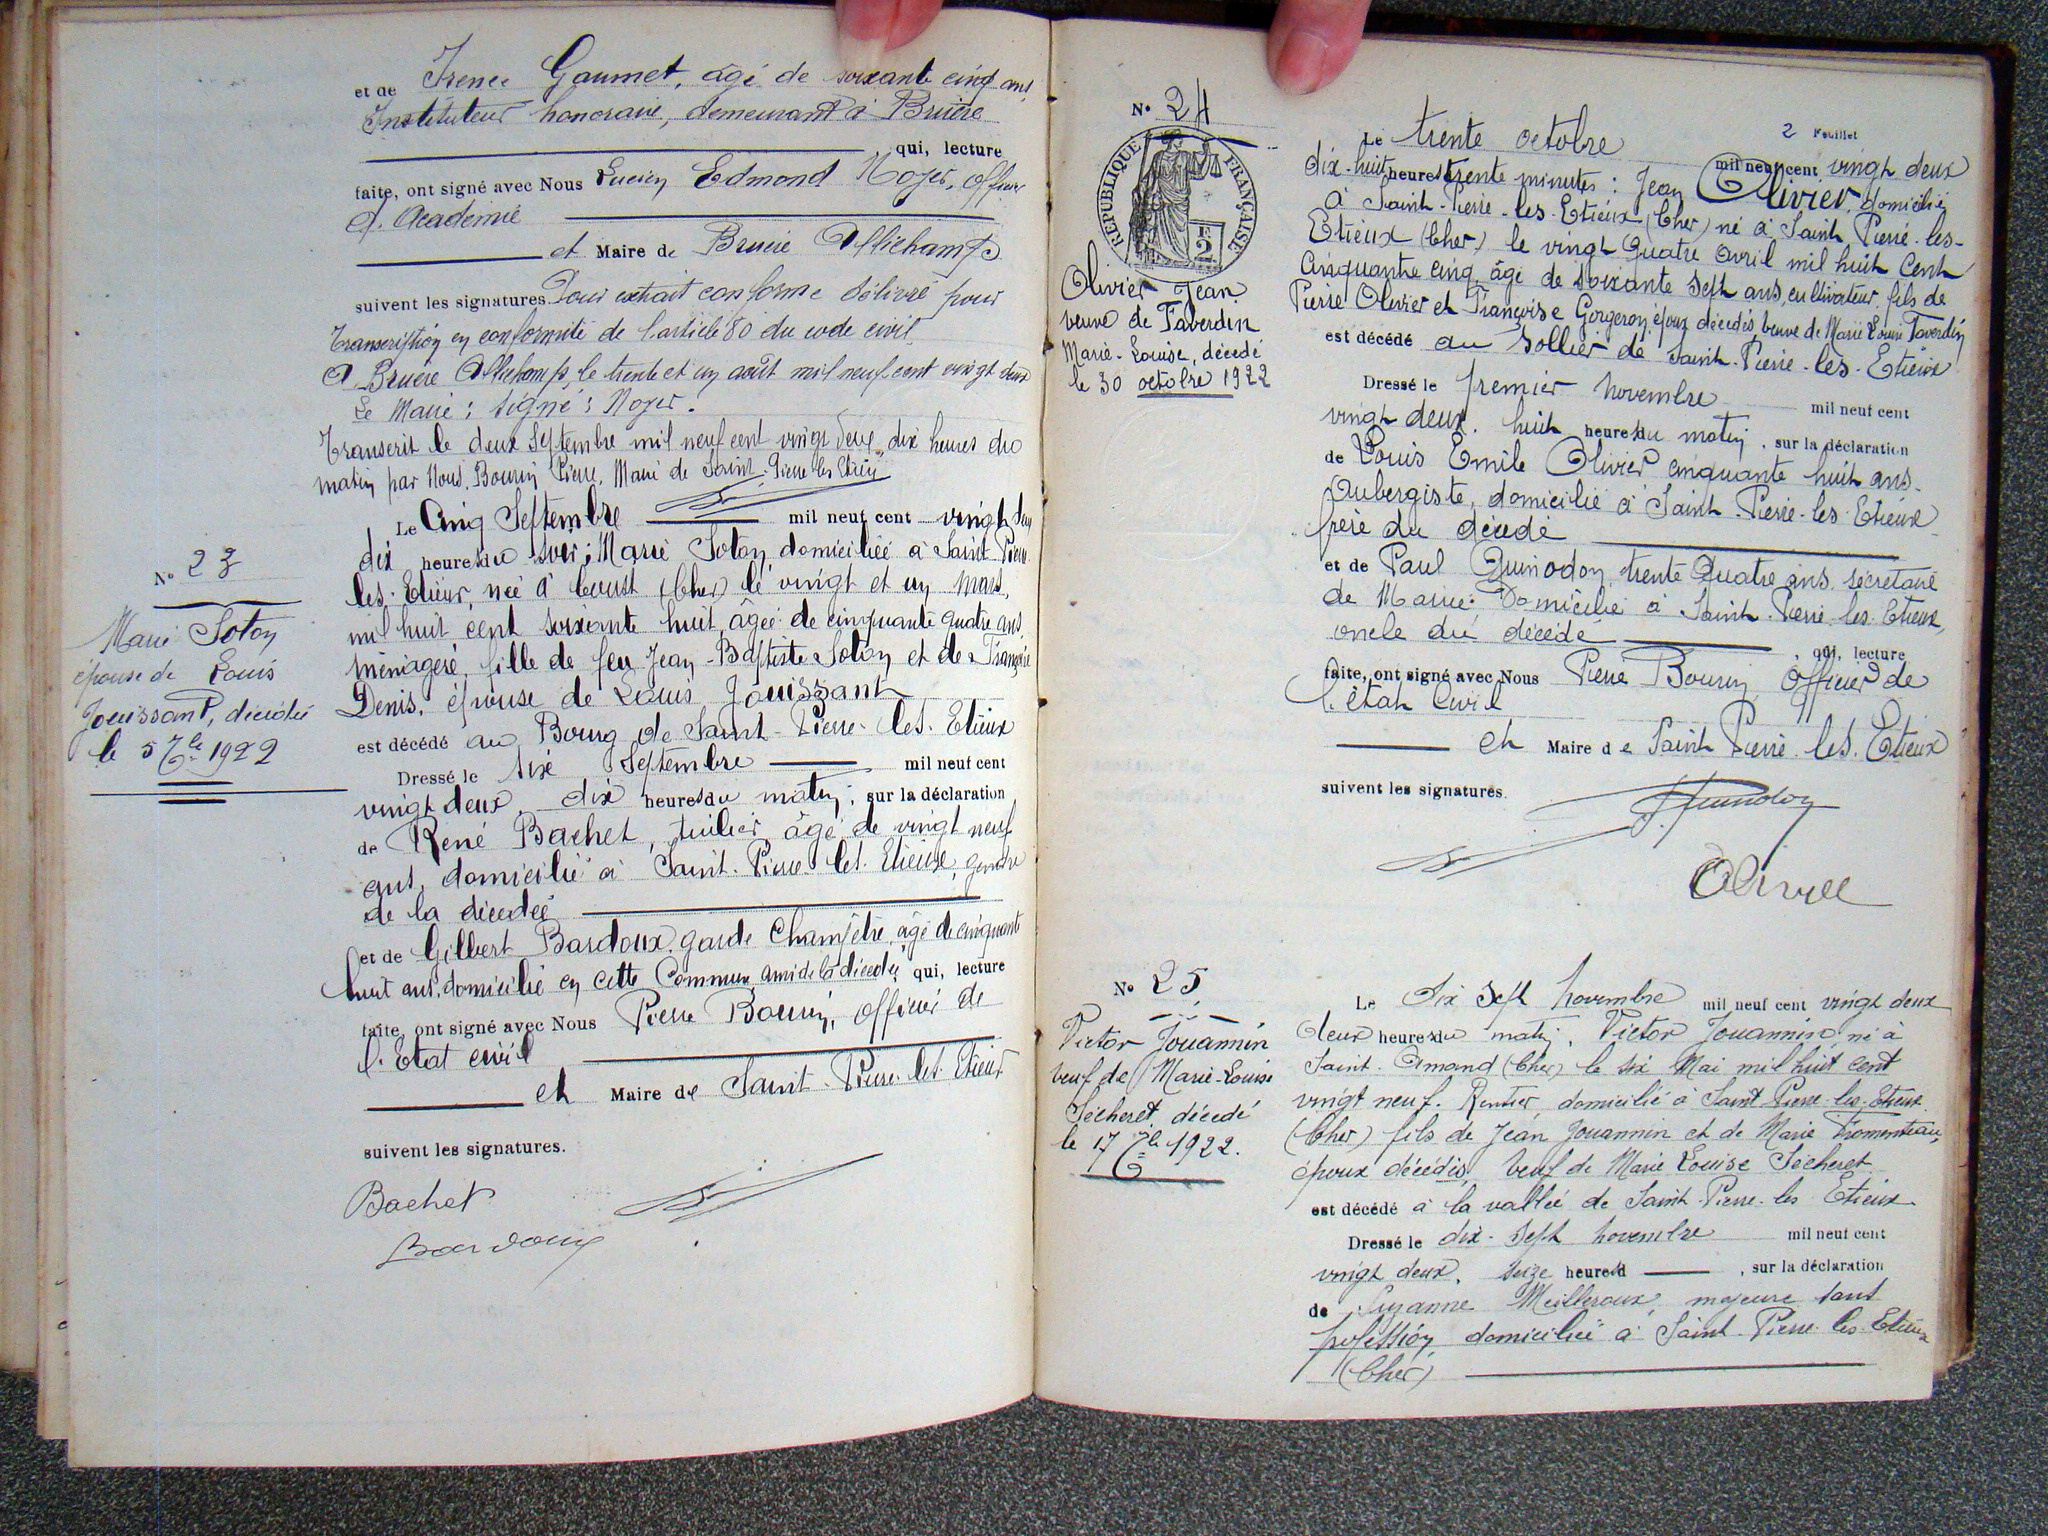 et de Irenée Gaumet, âgé de soixante cinq ans,
Instituteur honoraire, demeurant à Bruère
, qui, lecture
faite, ont signé avec Nous Lucien Edmond Noyer, officier
d'Académie
et Maire de Bruère Allichamps
suivent les signatures. Pour extrait conforme délivré pour
transcription en conformité de l'article 80 du code civil
A Bruère Allichamps, le trente et un août mil neuf cent vingt deux
Le Maire : signé : Noyer.
Transcrit le deux Septembre mil neuf cent vingt deux, dix heures du
matin par Nous, Bourin Pierre, Maire de Saint-Pierre les Etieux
N° 23
Marie Soton
épouse de Louis
Jouissant, décédée
le 5 7bre 1922
Le Cinq Septembre mil neuf cent vingt deux
dix heures du soir ; Marie Soton domiciliée à Saint Pierre
les Etieux, née à Coust (Cher) le vingt et un Mars
mil huit cent soixante huit, âgée de cinquante quatre ans,
ménagère, fille de feu Jean-Baptiste Soton et de Françoise
Denis, épouse de Louis Jouissant
est décédé au Bourg de Saint-Pierre-les-Etieux
Dressé le six Septembre mil neuf cent
vingt deux, dix heures du matin, sur la déclaration
de René Bachet, tuilier âgé de vingt neuf
ans, domicilié à Saint-Pierre-les-Etieux, gendre
de la décédée
et de Gilbert Bardoux, garde Champêtre, âgé de cinquante
huit ans, domicilié en cette Commune, ami de la décédée qui, lecture
faite, ont signé avec Nous Pierre Bourin, officier de
l'Etat civil
et Maire de Saint-Pierre-les-Etieux
suivent les signatures.
Bachet
Bardoux
N° 24
RÉPUBLIQUE FRANÇAISE
2
Olivier Jean
veuve de Taverdin
Marie-Louise, décédé
le 30 octobre 1922
2 Feuillet
Le trente octobre mil neuf cent vingt deux
dix-huit heures trente minutes : Jean Olivier, domicilié
à Saint-Pierre-les-Etieux (Cher) né à Saint Pierre-les-
Etieux (Cher) le vingt Quatre Avril mil huit Cent
Cinquante cinq âgé de soixante sept ans, cultivateur, fils de
Pierre Olivier et Françoise Gorgeron, époux décédés, veuve de Marie Louise Taverdin
est décédé au Sollier de Saint-Pierre-les-Etieux
Dressé le premier novembre mil neuf cent
vingt deux, huit heures du matin, sur la déclaration
de Louis Emile Olivier cinquante huit ans
Aubergiste, domicilié à Saint-Pierre-les-Etieux
frère du décédé
et de Paul Quinodon, trente Quatre ans, secrétaire
de Mairie domicilié à Saint-Pierre-les-Etieux,
oncle du décédé
, qui, lecture
faite, ont signé avec Nous Pierre Bourin, Officier de
l'état Civil
et Maire de Saint Pierre-les-Etieux
suivent les signatures.
Olivier
N° 25
Victor Jouannin
veuf de Marie-Louise
Sécheret, décédé
le 17 9bre 1922.
Le Dix Sept Novembre mil neuf cent vingt deux
deux heures du matin, Victor Jouannin, né à
Saint-Amand (Cher) le six Mai mil huit cent
vingt neuf. Rentier, domicilié à Saint-Pierre-les-Etieux
(Cher) fils de Jean Jouannin et de Marie Fromenteau,
époux décédés, veuf de Marie Louise Sécheret
est décédé à la vallée de Saint-Pierre-les Etieux
Dressé le dix-sept novembre mil neuf cent
vingt deux, seize heures d , sur la déclaration
de Suzanne Meilleroux, majeure sans
profession domiciliée à Saint-Pierre-les-Etieux
(Cher)